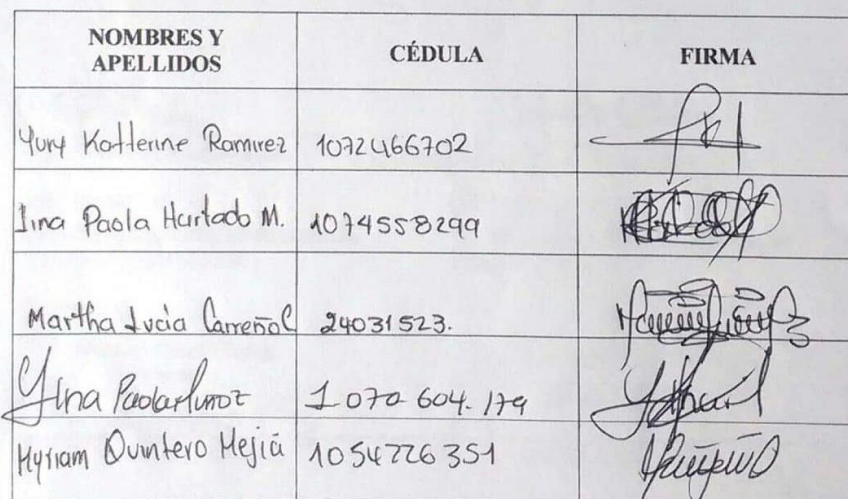 NOMBRES Y
APELLIDOS
CÉDULA
FIRMA
Yury Katterine Ramirez 1072466702
Jina Paola Hurtado M. 1074558299
Martha Lucia Carreño C 24031523.
Yina Paola Munoz 1.070.604.179
Myriam Quintero Mejiá 1054226351